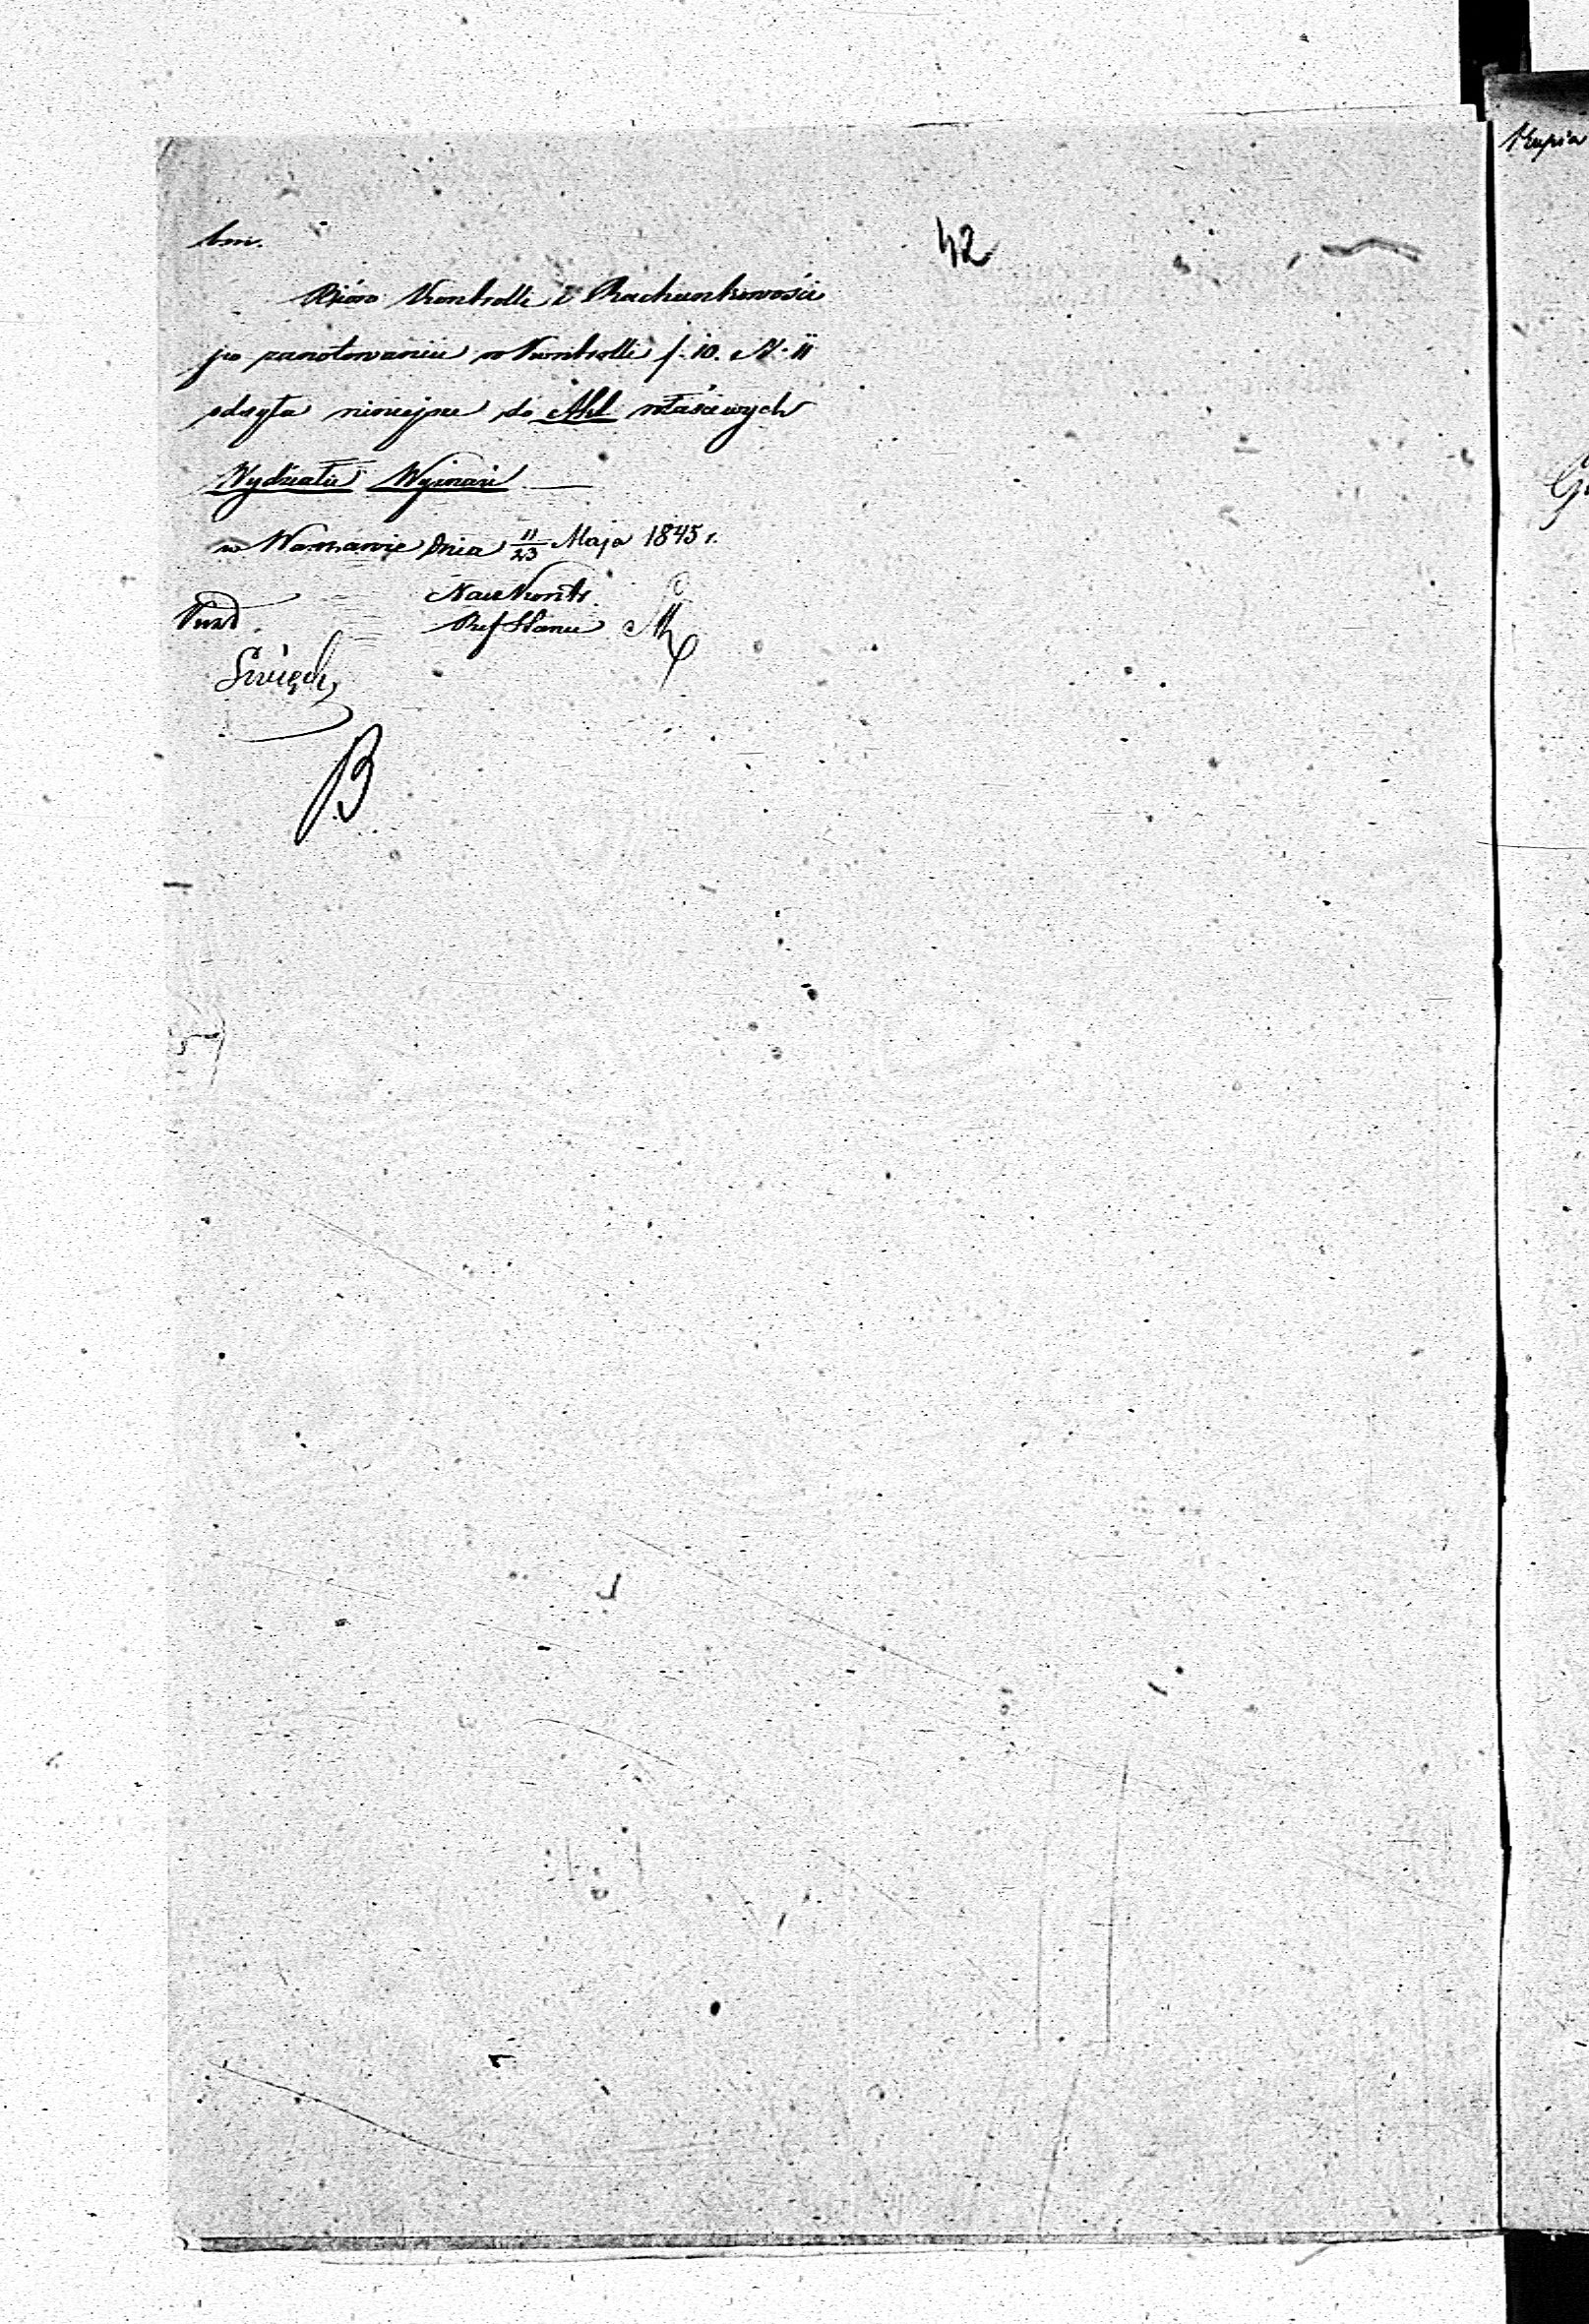 42
Bióro Kontrolli i Rachunkowości
po zanotowaniu w Kontrolli f. 10. N. 11
odsyła niniejsze do Akt właściwych
Wydziału Wyznań
w Warszawie dnia 11/23 Maja 1845 r.
Nacz Kontr.
Ref Stanu
B
Kopia